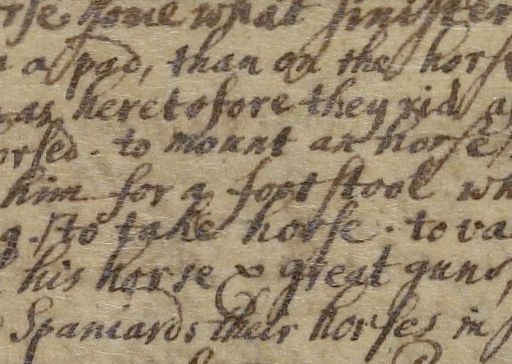 what sinister
a pad, than on the horse
as heretofore they rid as
to mount an horse
him for a foot stool wh
to take horse. to va
his horse & great guns,
Spaniards their horses in